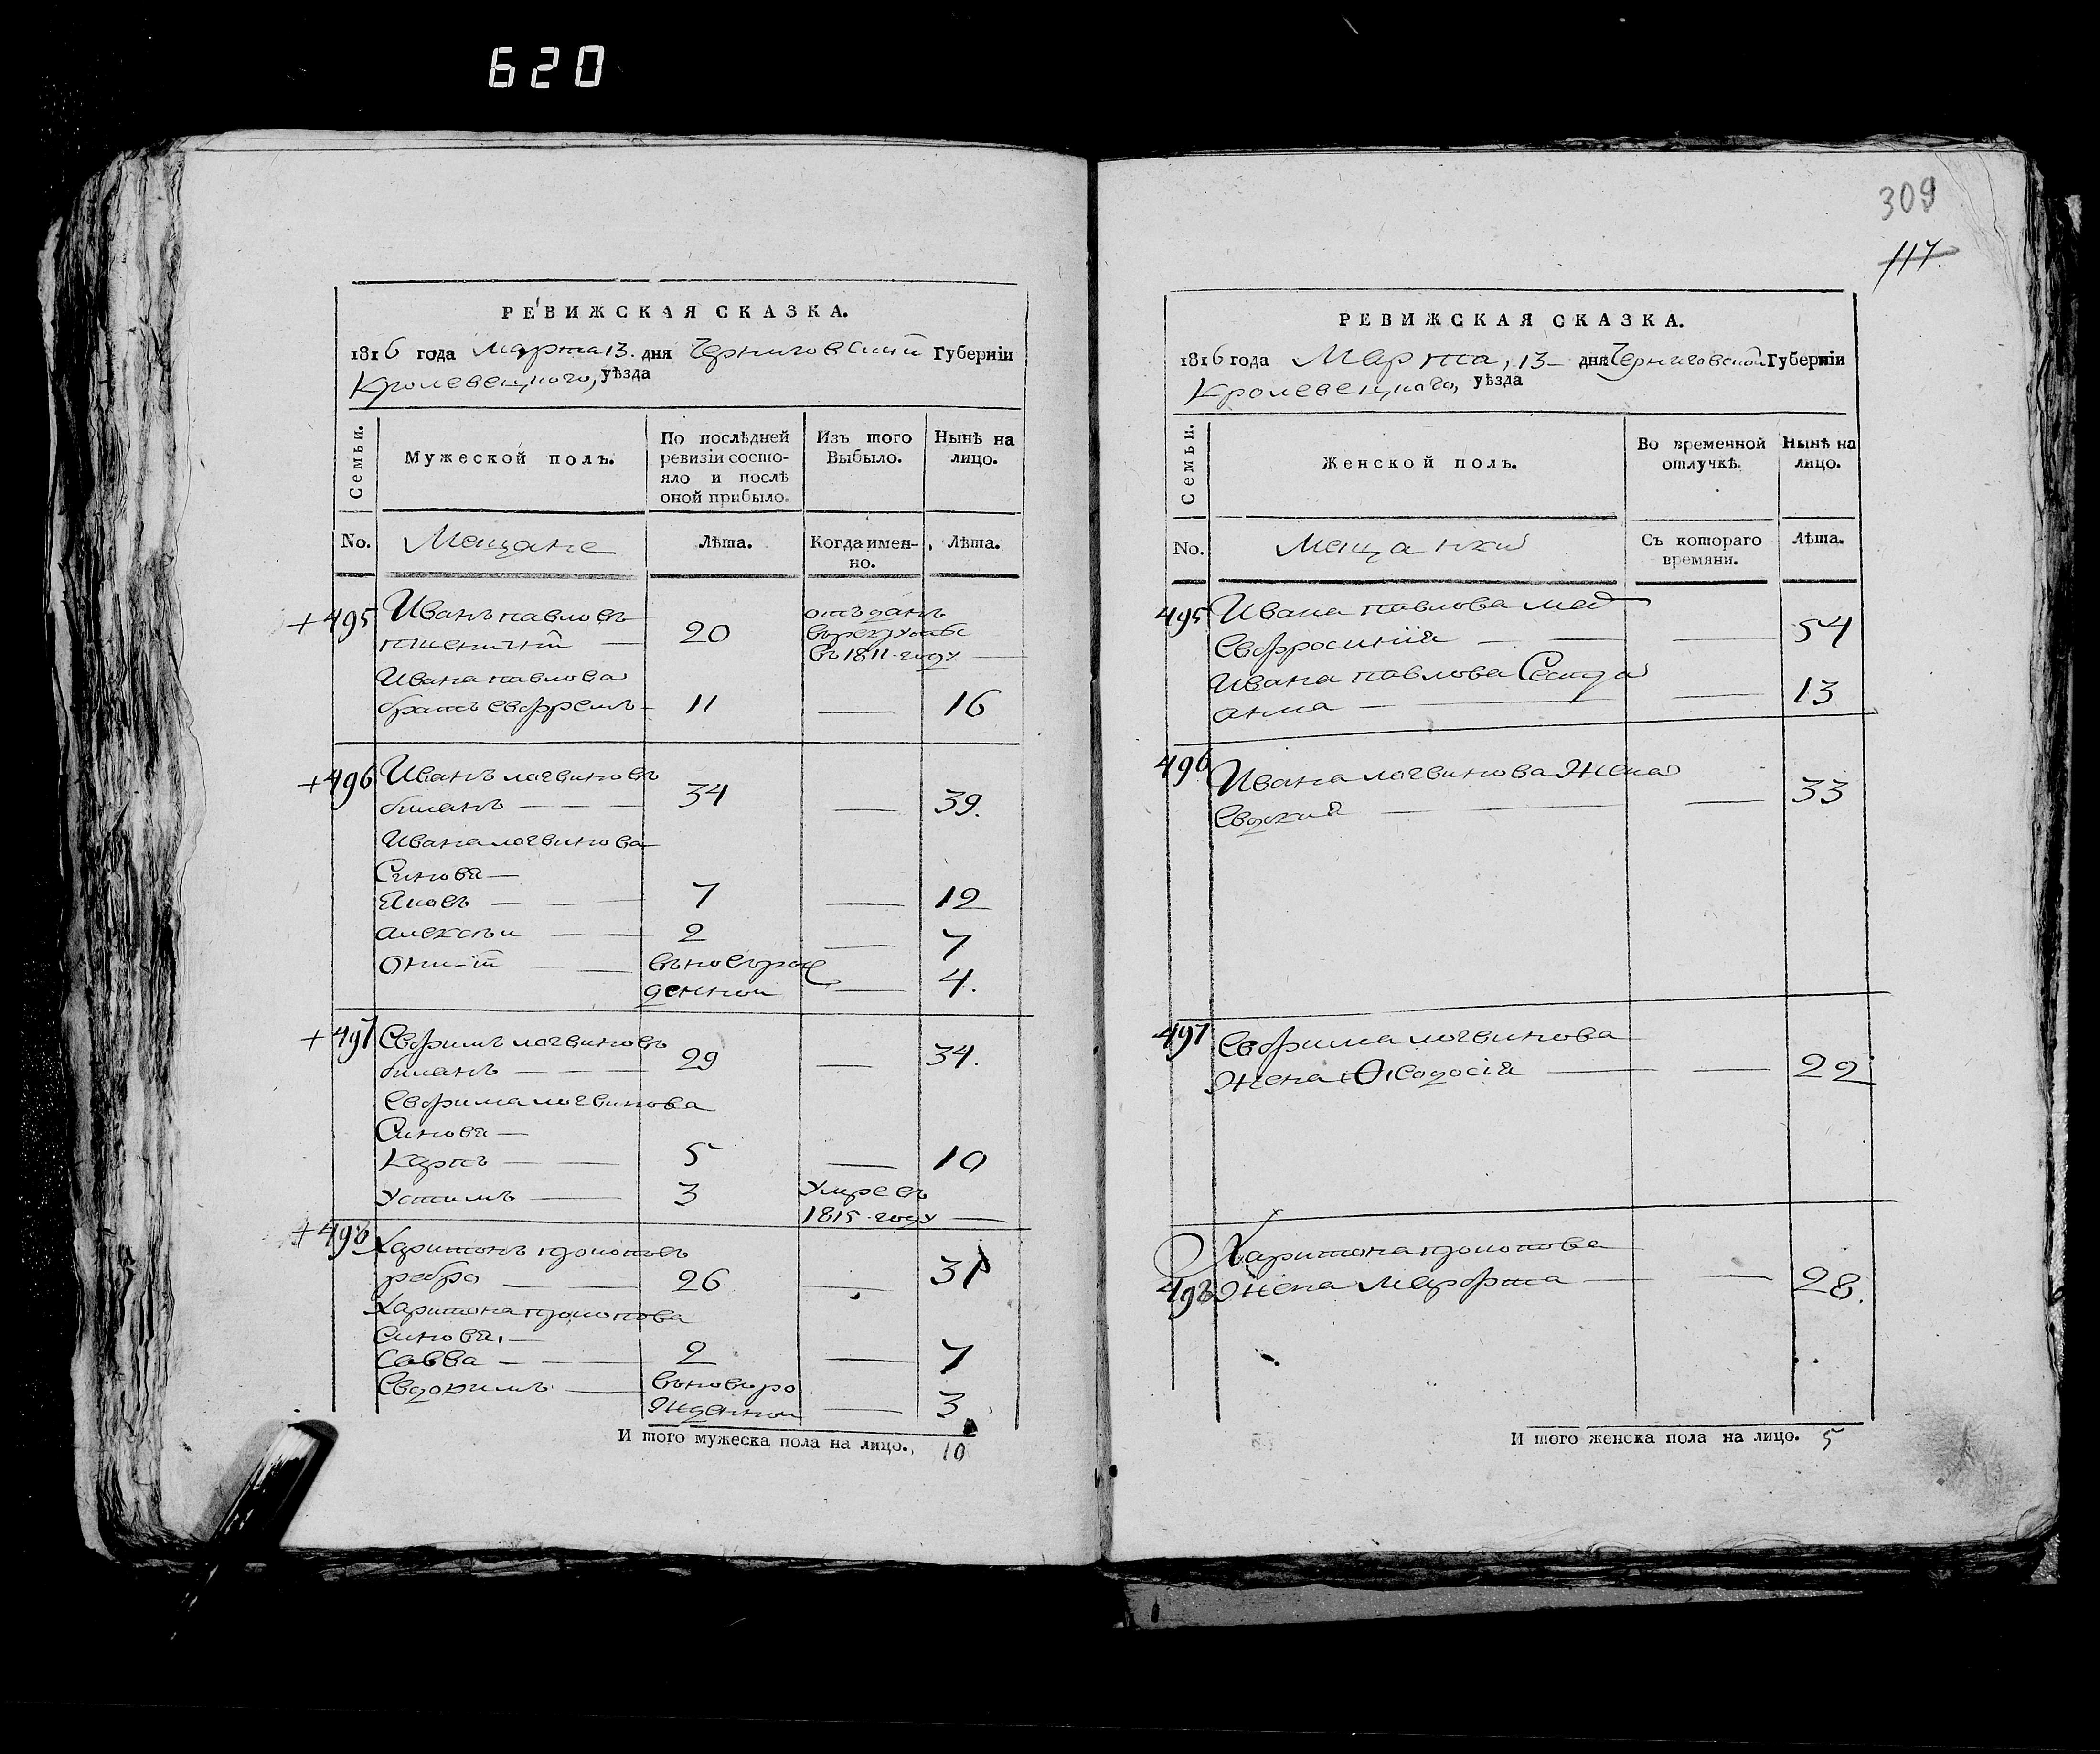 620
РЕВИЖСКАЯ СКАЗКА.
1816 года Марта 13. дня Черниговский Губернїи
Кролевецкого, уѣзда
Семьи.
Мужеской полъ.
По послѣдней ревизіи состо-яло и послѣ оной прибыло.
Изъ того Выбыло.
Нынѣ на лицо.
No. Мещане Лѣта. Когда имен-но. Лѣта.
+495 Иванъ павловъ
20 отъданъ
въ рекруты
въ 1811 году
Ивана павлова
братъ евфремъ 11 — 16
+496 Иванъ логвиновъ
биланъ — 34 — 39.
Ивана логвинова
Синовя —
Яковъ — 7 — 12
алексѣи — 2 — 7
вьновьрож
денной — 4.
+497 Евфимъ логвиновъ
биланъ — 29 — 34.
Евфима логвинова
Синовя —
карпъ — 5 — 10
Устимъ — 3 Умре въ
1815 году —
+498 Харитонъ
ребро — 26 — 31
Харитона
синовя, —
Савва — 2 — 7
Евдокимъ — вьновьро
жденной — 3
И того мужеска пола на лицо. 10
309
117.
РЕВИЖСКАЯ СКАЗКА.
1816 года Марта, 13 дня Черниговской Губернїи
Кролевецкого, уѣзда
Семьи.
Женской полъ.
Во временной отлучкѣ.
Нынѣ на лицо.
No. Мещанки Съ котораго времяни. Лѣта.
495 Ивана павлова мат
Евфросинїя — — 54
Ивана павлова Сестра
анна — — 13
496 Ивана логвинова Жена
Евдокия — — 33
497 Евфима логвинова
Жена Ѳеодосїя — — 22
Харитона
498 Жена Марфта — — 28.
И того женска пола на лицо. 5